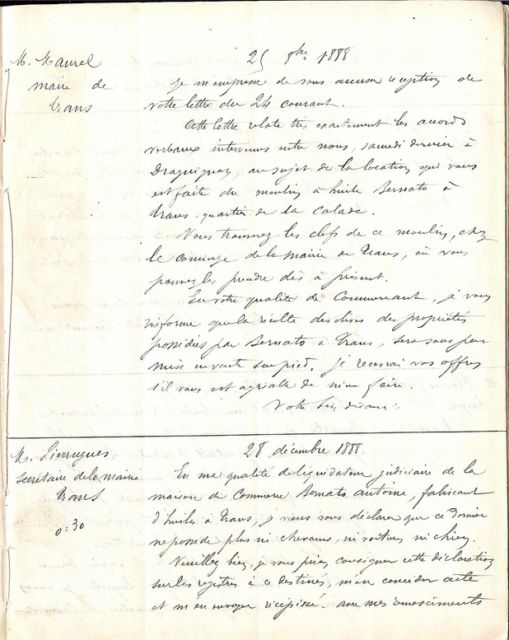 M. Maurel
maire de
trans
25 Xbre 1888
Je m'empresse de vous accuser réception de
votre lettre du 24 courant.
Cette lettre relate très exactement les accords
verbaux intervenus entre nous, samedi dernier à
Draguignan, au sujet de la location qui vous
est faite du moulin à huile Bernato à
trans quartier de la Calade.
Vous trouverez les clefs de ce moulin, chez
le concierge de la mairie de Trans, où vous
pouvez les prendre dès à présent.
En votre qualité de Commerçant, je vous
informe que la récolte des olives des propriétés
possédées par Bernato à Trans, sera sous peu
mise en vente sur pied. je recevrai vos offres
s'il vous est agréable de m'en faire.
Votre bien dévoué
M. Pierrugues
secrétaire de la mairie
Trans
0=30
28 décembre 1888.
En ma qualité de liquidateur judiciaire de la
maison de commerce Bernato antoine, fabricant
d'huiles à Trans, je viens vous déclarer que ce dernier
ne possède plus ni chevaux, ni voitures, ni chien.
Veuillez bien, je vous prie, consigner cette déclaration
sur les registres à ce destinés, m'en concéder acte
et m'en envoyer récépissé. avec mes remerciements